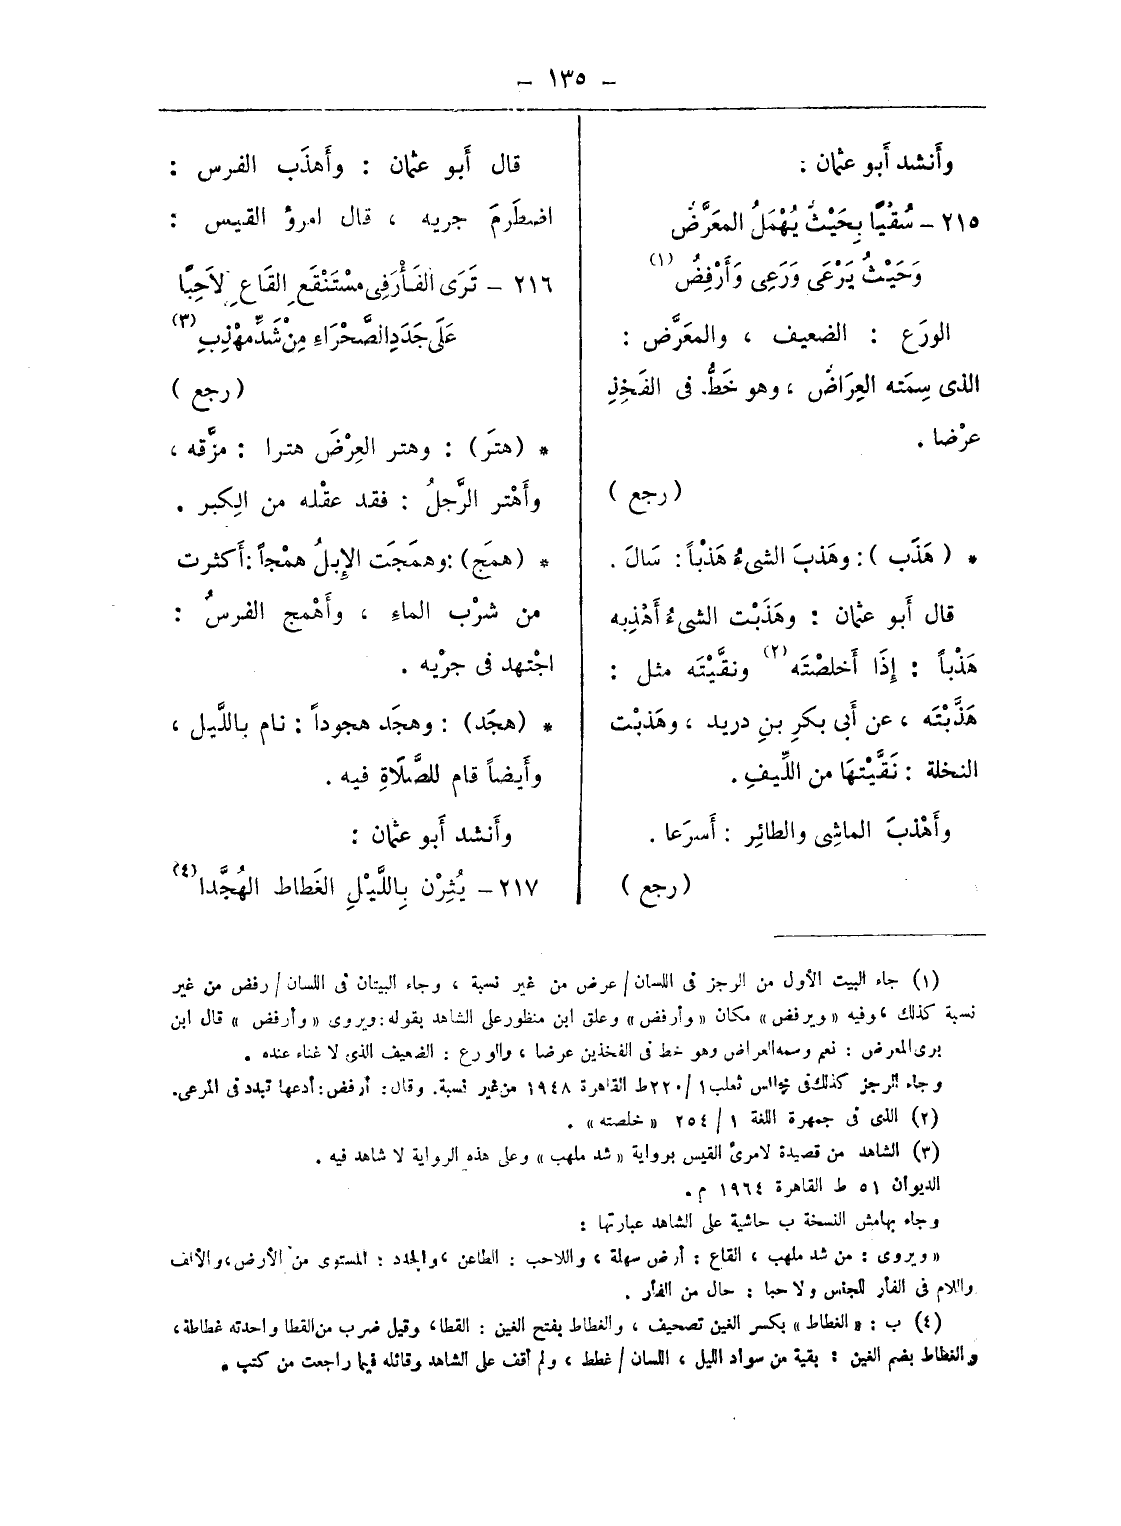 – ١٣٥ –
وأَنشد أَبو عثمان :
٢١٥ – سُقْيًا بِحَيْثُ يُهْمَلُ المعَرَّضُ
وَحَيْثُ يَرْعَى وَرَعِى وَأَرْفِضُ (١)
الورَع : الضعيف ، والمعَرَّض :
الذى سِمَته العِرَاضُ ، وهو خَطٌّ فى الفَخِذِ
عرْضا .
( رجع )
* ( هَذَب ) : وهَذبَ الشىءُ هَذْباً : سَالَ .
قال أبو عثمان : وهَذَبْت الشىءَ أَهْذِبه
هَذْباً : إِذَا أَخلصْتَه (٢) ونقَّيْتَه مثل :
هَذَّبْتَه ، عن أَبى بكرِ بنِ دريد ، وهَذبْت
النخلة : نَقَّيْتهَا من اللِّيفِ .
وأَهْذبَ الماشِى والطائِر : أَسرَعا .
( رجع )
قال أَبو عثمان : وأَهذَب الفرس :
اضطَرمَ جريه ، قال امرؤ القيس :
٢١٦ – تَرَى الفَأْرَ فِى مسْتَنْقَعِ القَاعِ لاَحِبًا
عَلَى جَدَدِ الصَّحْرَاءِ مِنْ شَدٍّ مهْذِبِ (٣)
( رجع )
* (هتَر) : وهتر العِرْضَ هترا : مزَّقه ،
وأَهْتر الرَّجلُ : فقد عقْله من الكِبر .
* (همَج) : وهمَجَت الإِبلُ همْجاً : أَكثرت
من شرْب الماءِ ، وأَهْمج الفرسُ :
اجْتهد فى جرْيه .
* (هجَد) : وهجَد هجوداً : نام باللَّيل ،
وأَيضاً قام للصَّلَاةِ فيه .
وأَنشد أَبو عثمان :
٢١٧ – يُثِرْن بِاللَّيْلِ الغَطاط الهُجَّدا (٤)
(١) جاء البيت الأول من الرجز فى اللسان / عرض من غير نسبة ، وجاء البيتان فى اللسان / رفض من غير
نسبة كذلك ، وفيه « ويرفض » مكان « وأرفض » وعلق ابن منظور على الشاهد بقوله : ويروى « وأرفض » قال ابن
برى المعرض : نعم وسمه العراض وهو خط فى الفخذين عرضا ، والورع : الضعيف الذى لا غناء عنده .
وجاء الرجز كذلك فى مجالس ثعلب ١ / ٢٢٠ ط القاهرة ١٩٤٨ من غير نسبة. وقال : أرفض : أدعها تبدد فى المرعى.
(٢) الذى فى جمهرة اللغة ١ / ٢٥٤ « خلصته » .
(٣) الشاهد من قصيدة لامرئ القيس برواية « شد ملهب » وعلى هذه الرواية لا شاهد فيه .
الديوان ٥١ ط القاهرة ١٩٦٤ م .
وجاء بهامش النسخة ب حاشية على الشاهد عبارتها :
« ويروى : من شد ملهب ، القاع : أرض سهلة ، واللاحب : الطاعن ، والجدد : المستوى من الأرض ، والألف
واللام فى الفأر للجنس ولاحبا : حال من الفأر .
(٤) ب : « الغطاط » بكسر الغين تصحيف ، والغطاط بفتح الغين : القطا ، وقيل ضرب من القطا واحدته غطاطة ،
والغطاط بضم الغين : بقية من سواد الليل ، اللسان / غطط ، ولم أقف على الشاهد وقائله فيما راجعت من كتب .